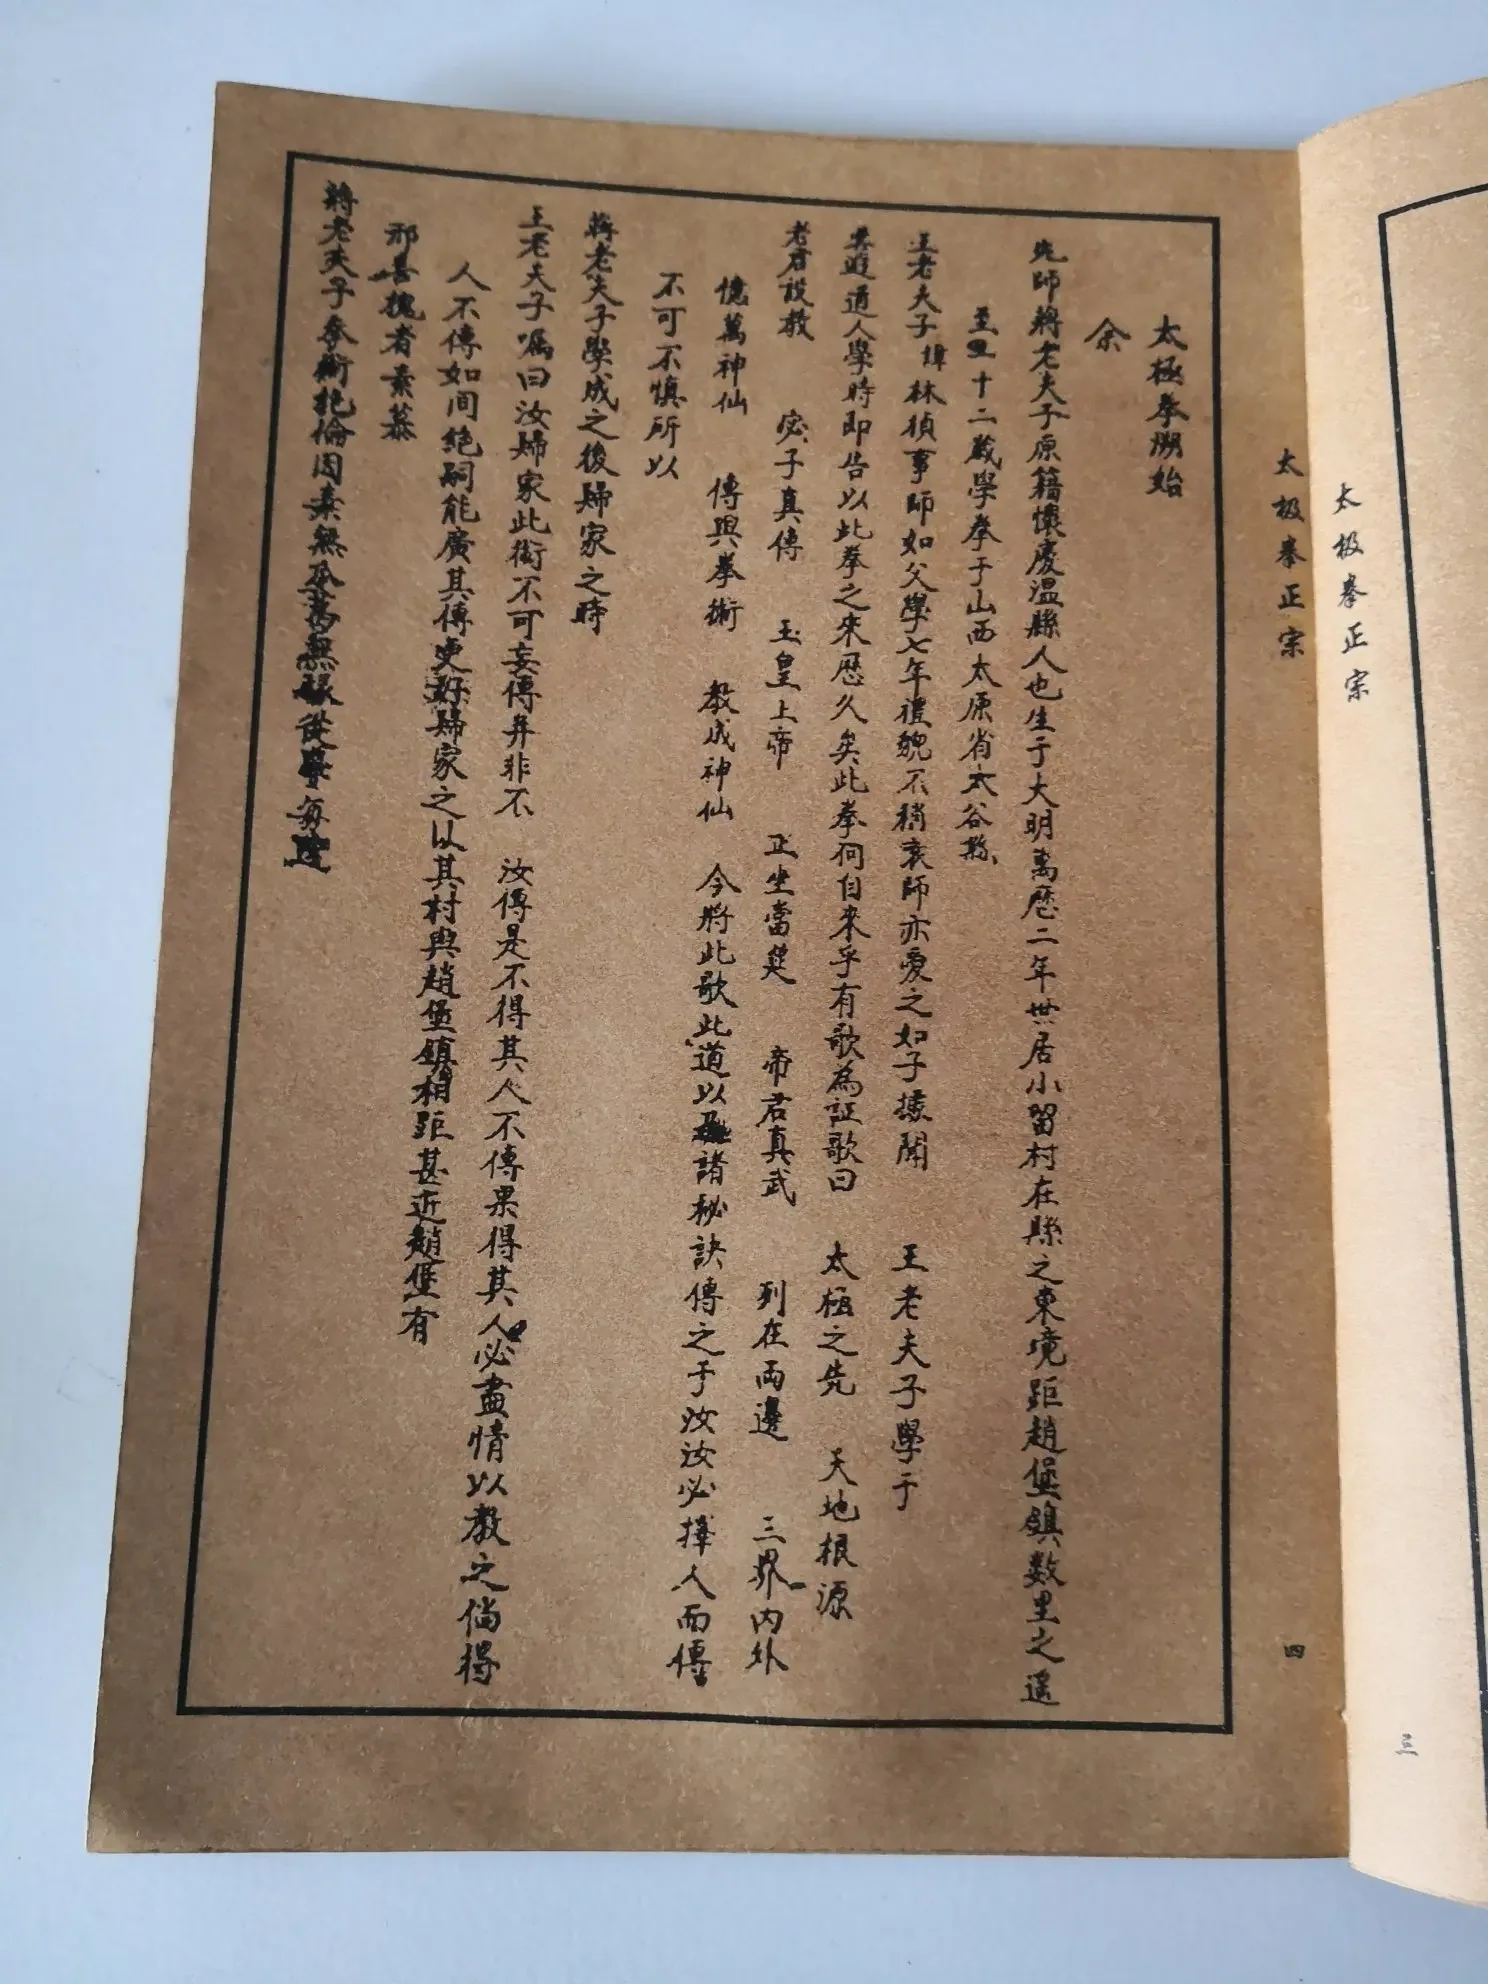 太極拳溯始
余
先師蔣老夫子原籍懷慶溫縣人也生于大明萬歷二年世居小留村在縣之東境距趙堡鎮數里之遙
至二十二歲學拳于山西太原省太谷縣
王老夫子諱林楨事師如父學七年禮貌不稍衰師亦愛之如子據聞 王老夫子學于
雲遊道人學時即告以此拳之來歷久矣此拳何自來乎有歌為証歌曰 太極之先 天地根源
老君設教 宓子真傳 玉皇上帝 正坐當筵 帝君真武 列在兩邊 三界內外
億萬神仙 傳與拳術 教成神仙 今將此歌此道以諸秘訣傳之于汝汝必擇人而傳
不可不慎所以
蔣老夫子學成之後歸家之時
王老夫子囑曰汝歸家此術不可妄傳并非不 汝傳是不得其人不傳果得其人必盡情以教之倘得
人不傳如間絕嗣能廣其傳更好歸家之以其村與趙堡鎮相距甚近趙堡有
邢喜槐者素慕
蔣老夫子拳術絕倫因素無瓜葛無緣從學每逢
太极拳正宗
四
太极拳正宗
三